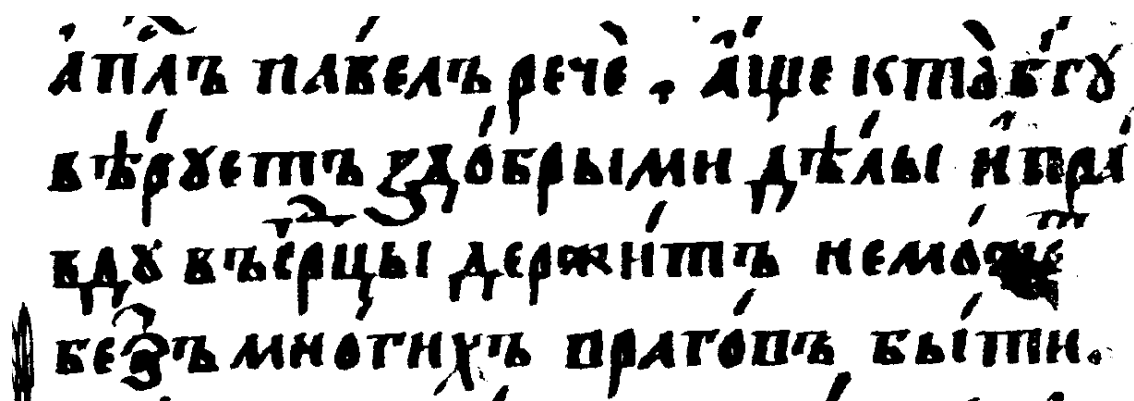 а҆пⷭ҇лъ павелъ речѐ , а҆́ще кто̀ бг҃ꙋ
вѣ́рꙋетъ здо́брыми дѣ́лы и҆пра́
вдꙋ въсе́рⷣцы держи́тъ немо́жеⷮ
безъ мно́гихъ праго́пъ бы́ти.